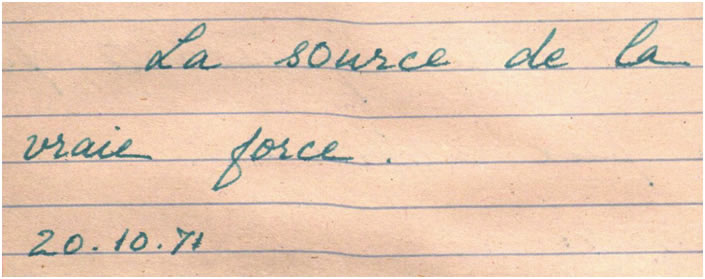 La source de la
vraie force.
20.10.71